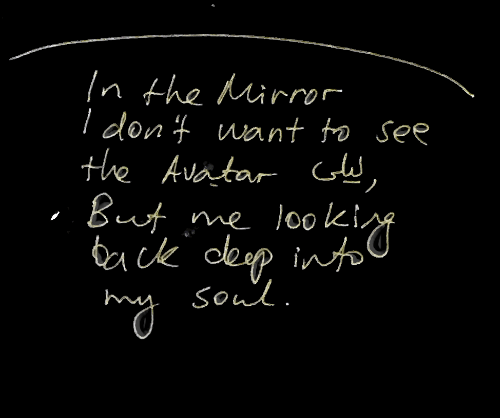 In the Mirror
I don't want to see
the Avatar
But me looking
back deep into
my soul.